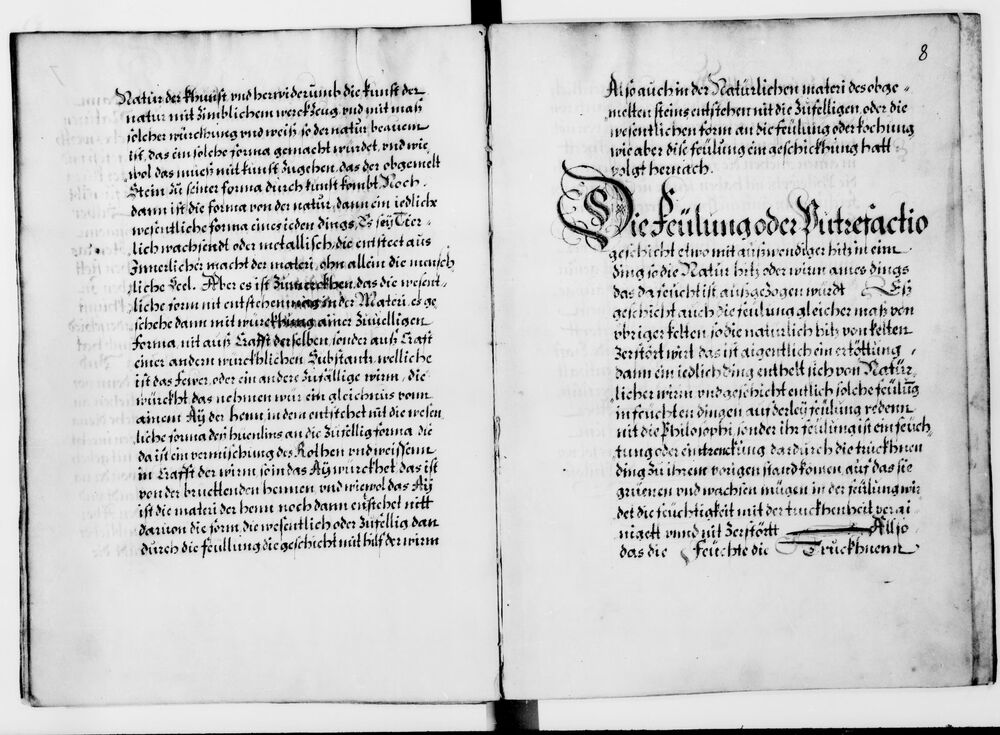 Natur der khunst vnd herwiderumb die kunst der
natur mit zimblichem werckzeug vnd mit maß
solcher würckhung vnd weiß so der natur bequem
ist, das ein solche forma gemacht würdet, vnd wie
wol das mueß mit kunst zugehen das der obgemelt
Stein zu seiner forma durch kunst kombt, Noch
dann ist die forma von der natur, dann ein iedliche
wesentliche forma eines ieden dings, Es seÿ Tier
lich wachsendt oder metallisch, die entstect aus
Innerlicher macht der materi, ohn allein die mensch
liche Seel. Aber es ist zumerckhen, das die wesent
liche form nit entstehen mag in der Materi, es ge
schehe dann mit würckhung ainer Zuuelligen
forma, nit auß Crafft derselben, sonder auß Craft
einer andern würckhlichen Substantz, welliche
ist das fewer, oder ein andere zufällige wirm, die
würckht das nehmen wür ein gleichnus vom
ainem Aÿ der henn in dem entstehet nit die wesen
liche forma deß huenlins an die zufellig forma, die
da ist ein vermischung des Rothen vnd weissenn
in Crafft der wirm so in das Aÿ würckhet das ist
von der bruettenden hennen, vnd wiewol das Aÿ
ist die materi der henn noch dann entstehet nitt
daruon die form, die wesentlich oder zufellig dan
durch die feullung die geschicht mit hilf der wirm
8
Also auch in der Natürlichen materi des obge=
melten steins entstehen nit die zufelligen oder die
wesentlichen form an die feülung oder kochung
wie aber dise feülung ein geschickhung hatt
volgt hernach.
Die Feülung oder Putrefactio
geschicht etwo mit außwendiger hitz in eim
ding so die Natur hitz oder wirm aines dings
das da feücht ist außgezogen würdt Eß
geschicht auch die feülung gleicher maß von
vbriger kelten, so die natürlich hitz von kelten
zerstört wirt das ist aigentlich ein ertöttung,
dann ein iedlich ding enthelt sich von Natür
licher wirm vnd geschicht entlich solche feülung
in feuchten dingen auf derleÿ feülung redenn
nit die Philosophi, sonder ihr feülung ist ein feuch
tung oder eintrenckung dardurch die trückhnen
ding zu ihrem vorigen stand komen, auf das sie
gruenen vnd wachsen mügen in der feülung wir
det die feüchtigkeit mit der truckhenheit verai
nigett vnnd nit zerstört Allso
das die Feüchte die Truckhnenn